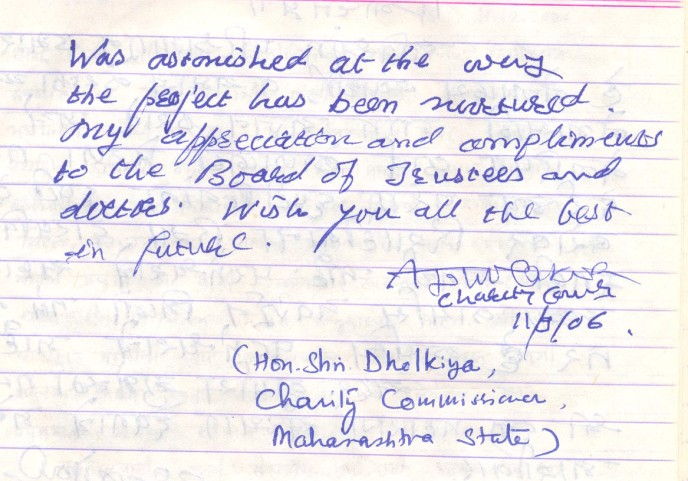 Was astonished at the way
the project has been nurtured.
My appreciation and compliments
to the Board of Trustees and
doctors. Wish you all the best
in future.
Charity Comr
11/3/06.
(Hon. Shri Dholkiya,
Charity Commissioner,
Maharashtra State)